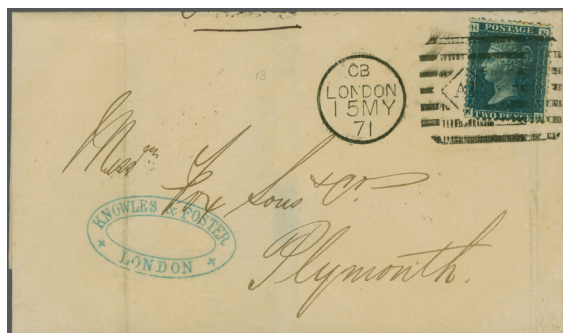 POSTAGE
TWO PENCE
CB
LONDON
15MY
71
Messrs Fox Sons & Co.
Plymouth.
KNOWLES & FOSTER
LONDON